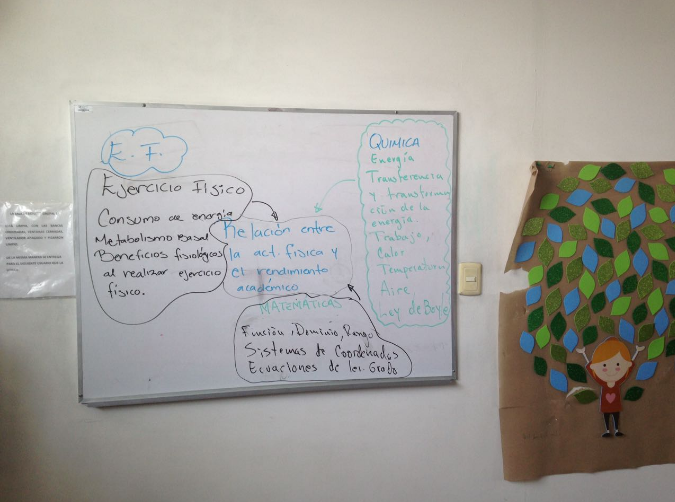 E. F.
Ejercicio Físico
Consumo de energía
Metabolismo Basal
Beneficios fisiológicos
al realizar ejercicio
físico.
Relación entre
la act. física y
el rendimiento
académico
QUIMICA
Energía
Transferencia
y transforma
ción de la
energía.
Trabajo,
Calor
Temperatura
Aire
Ley de Boyle
MATEMÁTICAS
Función, Dominio, Rango
Sistemas de Coordenadas
Ecuaciones de 1er. Grado